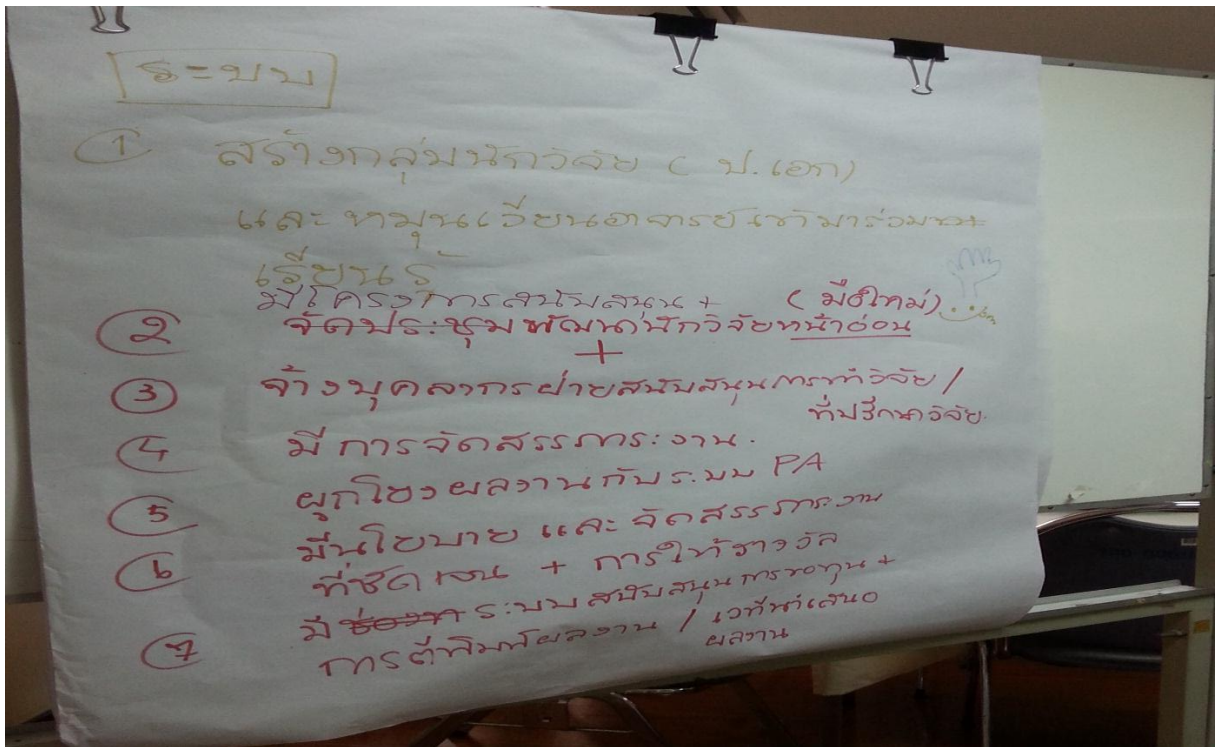 ระบบ
① สร้างกลุ่มนักวิจัย ( ป.เอก)
และหมุนเวียนอาจารย์เข้ามาร่วม
เรียนรู้
มีโครงการสนับสนุน + ( มือใหม่)
② จัดประชุมพัฒนานักวิจัยหน้าอ่อน
+
③ จ้างบุคลากรฝ่ายสนับสนุนการทำวิจัย /
ที่ปรึกษาวิจัย.
④ มีการจัดสรรภาระงาน.
⑤ ผูกโยงผลงานกับระบบ PA
⑥ มีนโยบาย และ จัดสรรภาระงาน
ที่ชัดเจน + การให้รางวัล
⑦ มี ช่องทาง ระบบสนับสนุนการขอทุน +
การตีพิมพ์ผลงาน / เวทีนำเสนอ
ผลงาน